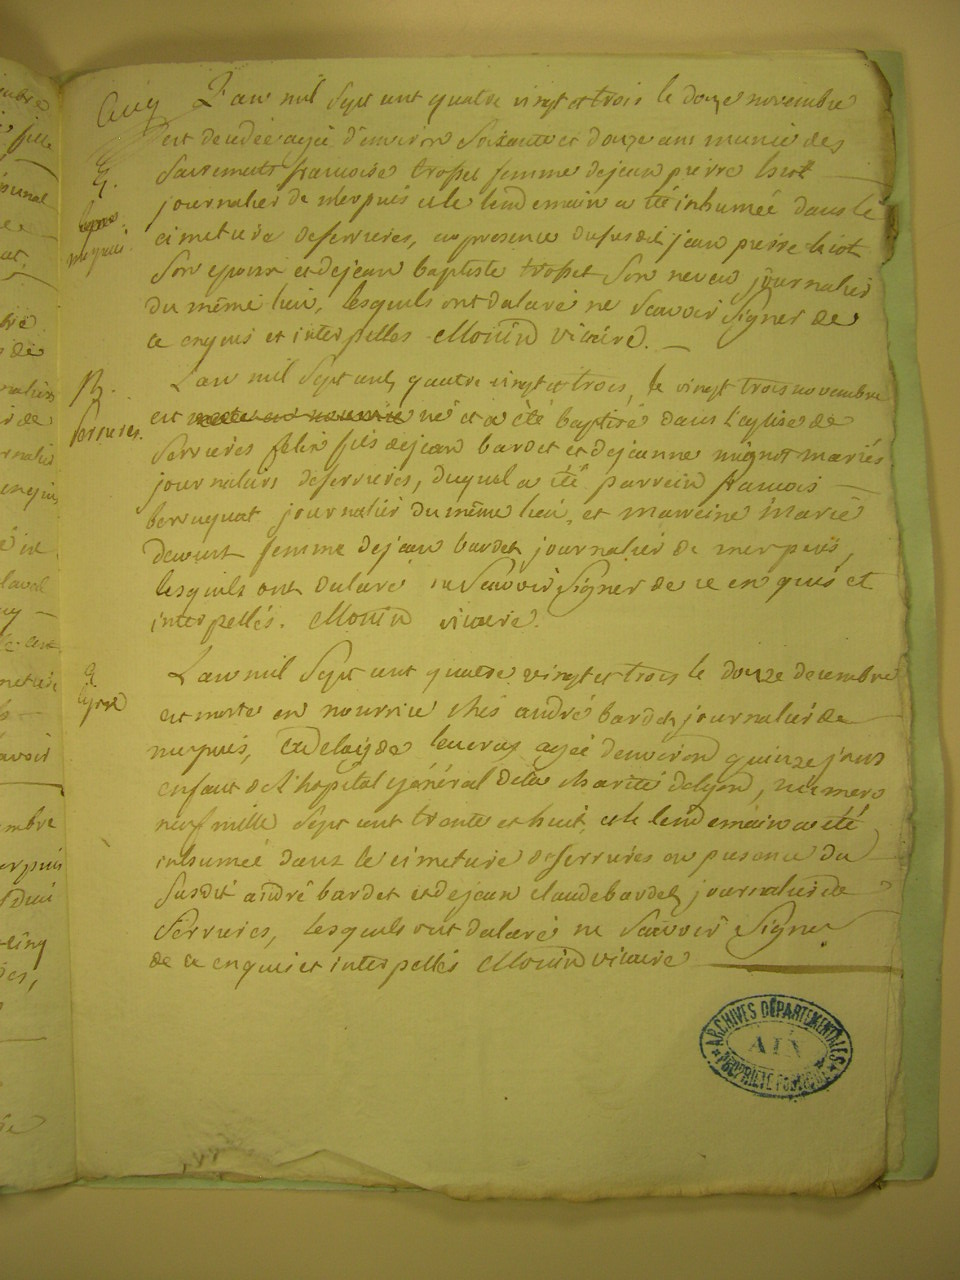 L'an mil sept cent quatre vingt et trois le douze novembre
est decedée agée d'environ soixante et douze ans munie des
sacrements francoise trosset femme de jean pierre
journalier de merpuis et le lendemain a été inhumée dans le
cimetiere de serrieres, en presence du susdit jean pierre
son epoux et de jean baptiste trosset son neveu journalier
du même lieu, lesquels ont declaré ne scavoir signer de
ce enquis et interpellés Mouin vicaire.
B.
serrieres.
L'an mil sept cent quatre vingt et trois, le vingt trois novembre
est né et a été baptisé dans l'eglise de
serrieres felix fils de jean bardet et de jeanne mignot mariés
journaliers de serrieres, duquel a été parrein francois
journalier du même lieu, et marreine Marie
femme de jean bardet journalier de merpuis,
lesquels ont declaré ne scavoir signer de ce enquis et
interpellés. Mouin vicaire.
L'an mil sept cent quatre vingt et trois le douze decembre
est morte en nourrice chés andré bardet journalier de
merpuis, agée denviron quinze jours
enfant de l'hopital général de la charité de lyon, numero
neuf mille sept cent trente et huit, et le lendemain a été
inhumée dans le cimetiere de serrieres en presence du
susdit andré bardet et de jean claude bardet journalier de
serrieres, lesquels ont declaré ne scavoir signer
de ce enquis et interpellés Mouin vicaire
ARCHIVES DÉPARTEMENTALES
AIN
PROPRIÉTÉ PUBLIQUE